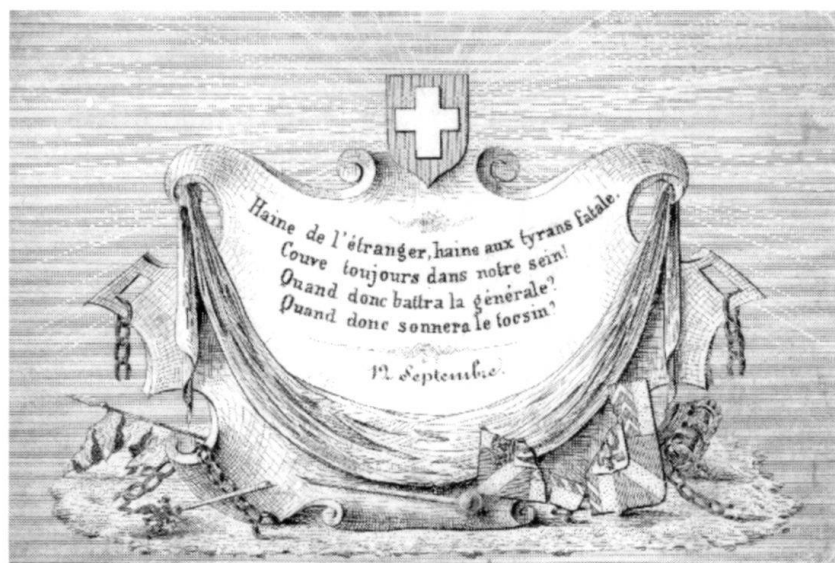 Haine de l'étranger, haine aux tyrans fatale.
Couve toujours dans notre sein!
Quand donc battra la générale?
Quand donc sonnera le tocsin?
12 Septembre.